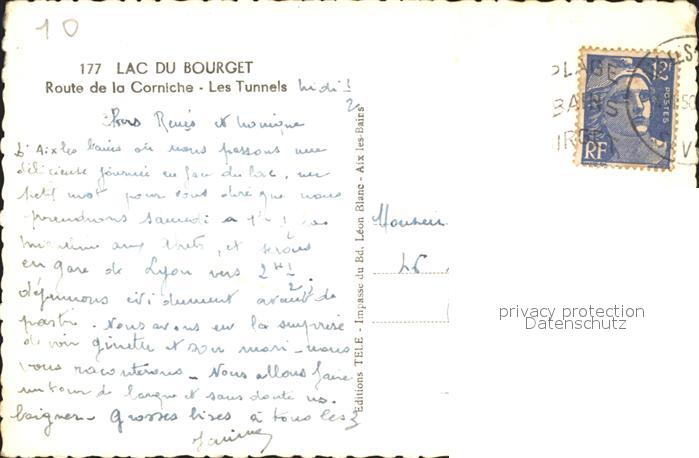 10
177 LAC DU BOURGET
Route de la Corniche - Les Tunnels
Midi
Chers René et Monique
D'Aix les bains où nous passons une
délicieuse journée en face du lac, un
petit mot pour vous dire que nous
prendrons samedi à
et serons
en gare de Lyon vers 2H
déjeunons évidemment avant de
partir. Nous avons eu la surprise
de voir Ginette et son mari - nous
vous raconterons - Nous allons faire
un tour de barque et sans doute ns.
baigner - Grosses bises à tous les 3
Editions TELE - Impasse du Bd. Léon Blanc - Aix-les-Bains
Monsieur
PLAGE
BAINS
12F
POSTES
RF
privacy protection
Datenschutz